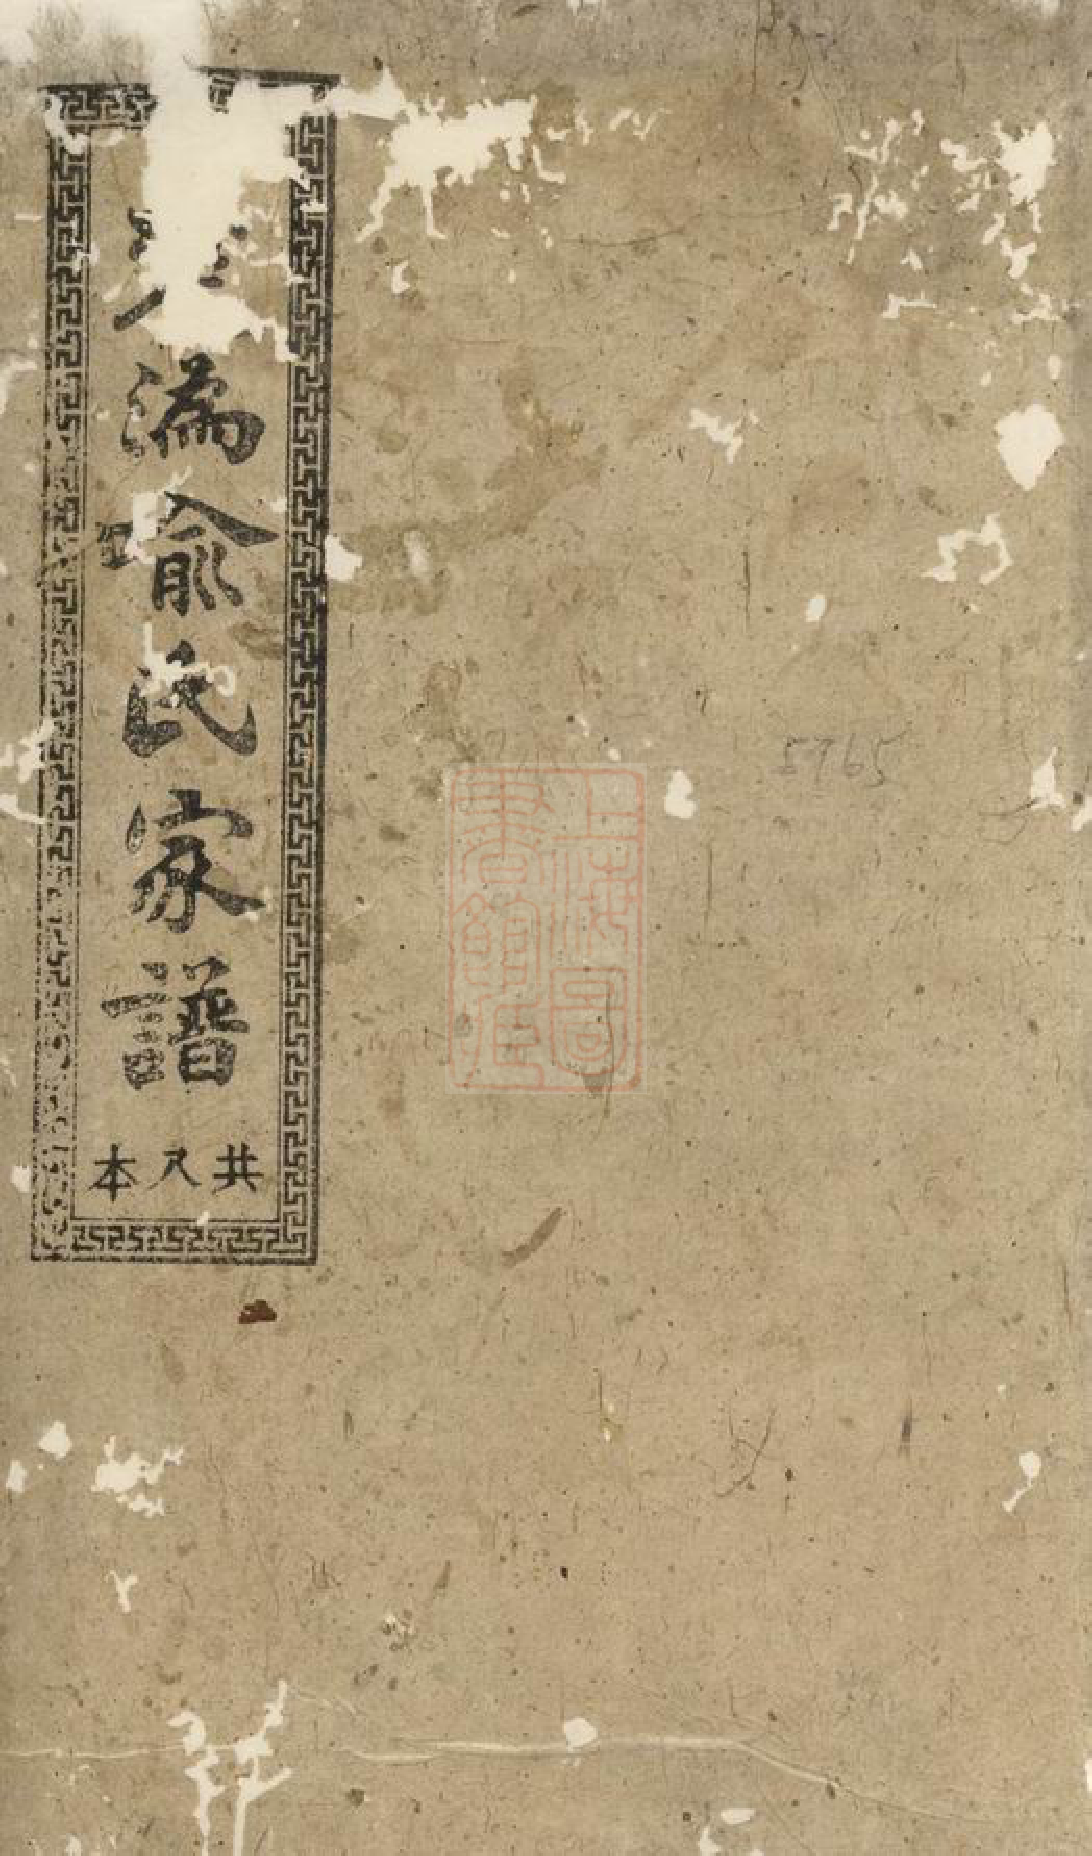 漘俞氏家譜
共八本
5765
上海圖書館藏